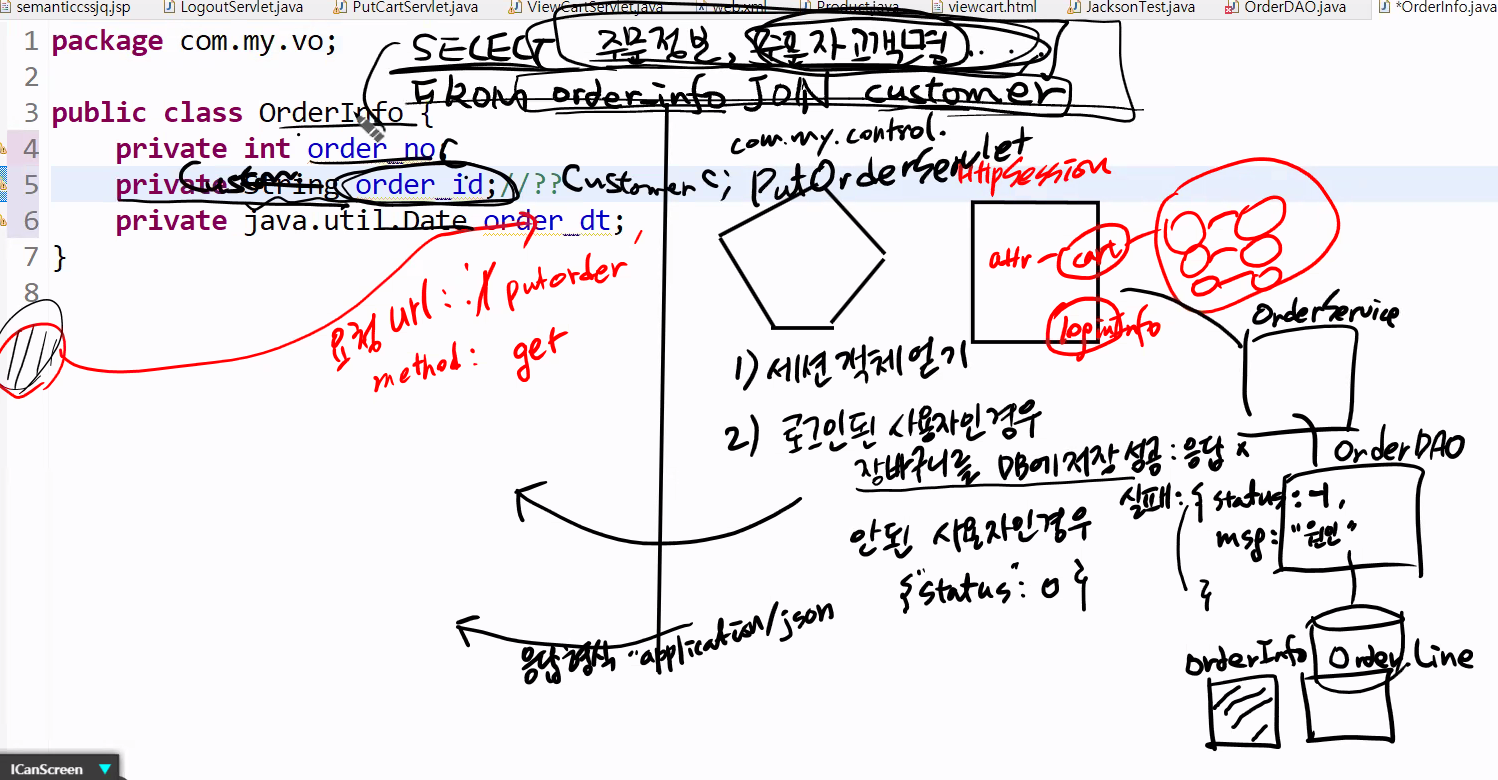 semanticcssjq.jsp
LogoutServlet.java
PutCartServlet.java
ViewCartServlet.java
web.xml
Product.java
viewcart.html
JacksonTest.java
OrderDAO.java
*OrderInfo.java
1 package com.my.vo;
2
3 public class OrderInfo {
4 private int order_no;
5 private String order_id;//??
6 private java.util.Date order_dt;
7 }
8
SELECT 주문정보, 주문자고객명.....
FROM order_info JOIN customer
Customer c;
com.my.control.
PutOrderServlet
HttpSession
attr - cart
loginInfo
요청 url : ./putorder
method : get
OrderService
1) 세션객체얻기
2) 로그인된 사용자인경우
장바구니를 DB에저장 성공:응답 x
실패:{status:-1,
msg:"원인"
}
OrderDAO
안된 사용자인경우
{"status": 0}
응답형식 "application/json
orderInfo
Order_Line
ICanScreen